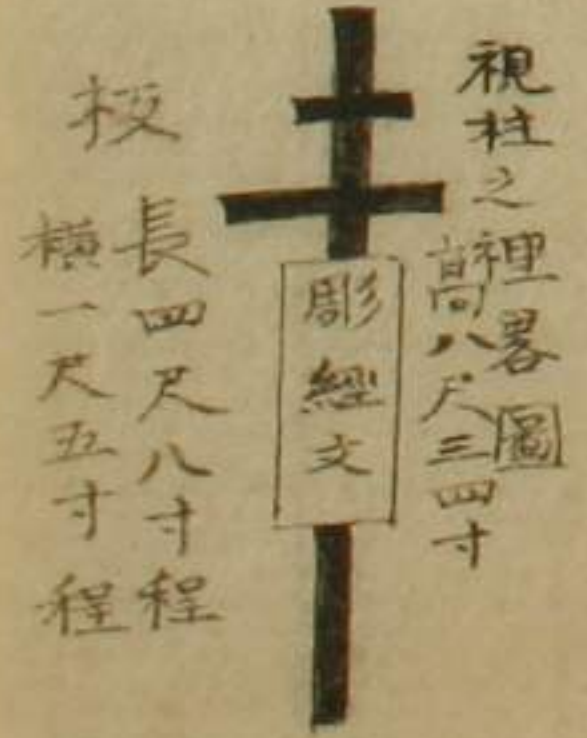 視柱之裡畧圖
高八尺三四寸
彫經文
板
長四尺八寸程
横一尺五寸程